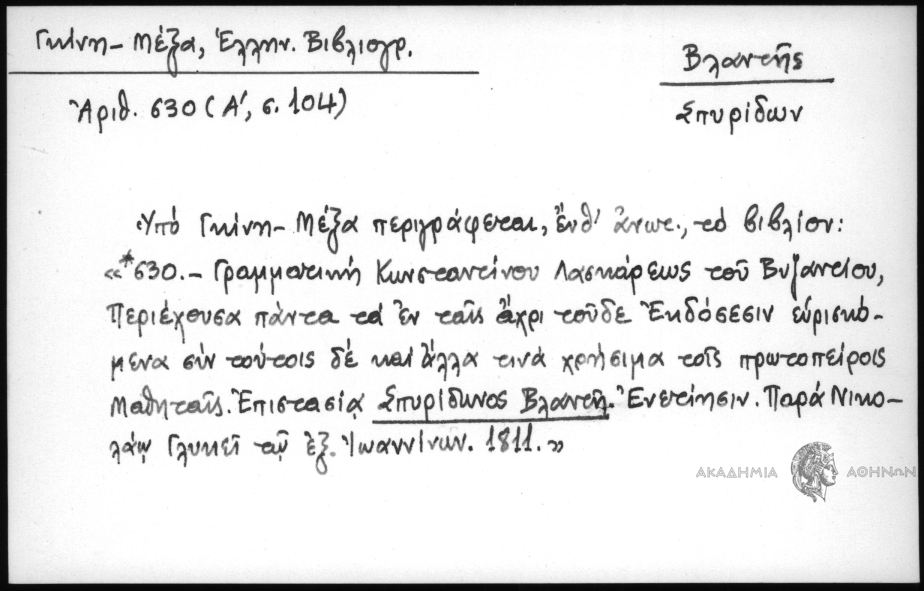 Γκίνη - Μέξα, Ἑλλην. Βιβλιογρ.
Βλαντῆς
Ἀριθ. 630 (Α΄, σ. 104)
Σπυρίδων
Ὑπό Γκίνη - Μέξα περιγράφεται, ἔνθ' ἀνωτ., τό βιβλίον:
«*630. – Γραμματική Κωνσταντίνου Λασκάρεως τοῦ Βυζαντίου,
Περιέχουσα πάντα τά ἐν ταῖς ἄχρι τοῦδε Ἐκδόσεσιν εὑρισκό-
μενα σύν τούτοις δέ καί ἄλλα τινά χρήσιμα τοῖς πρωτοπείροις
Μαθηταῖς. Ἐπιστασίᾳ Σπυρίδωνος Βλαντῆ. Ἐνετίῃσιν. Παρά Νικο-
λάῳ Γλυκεῖ τῷ ἐξ Ἰωαννίνων. 1811.»
ΑΚΑΔΗΜΙΑ ΑΘΗΝΩΝ